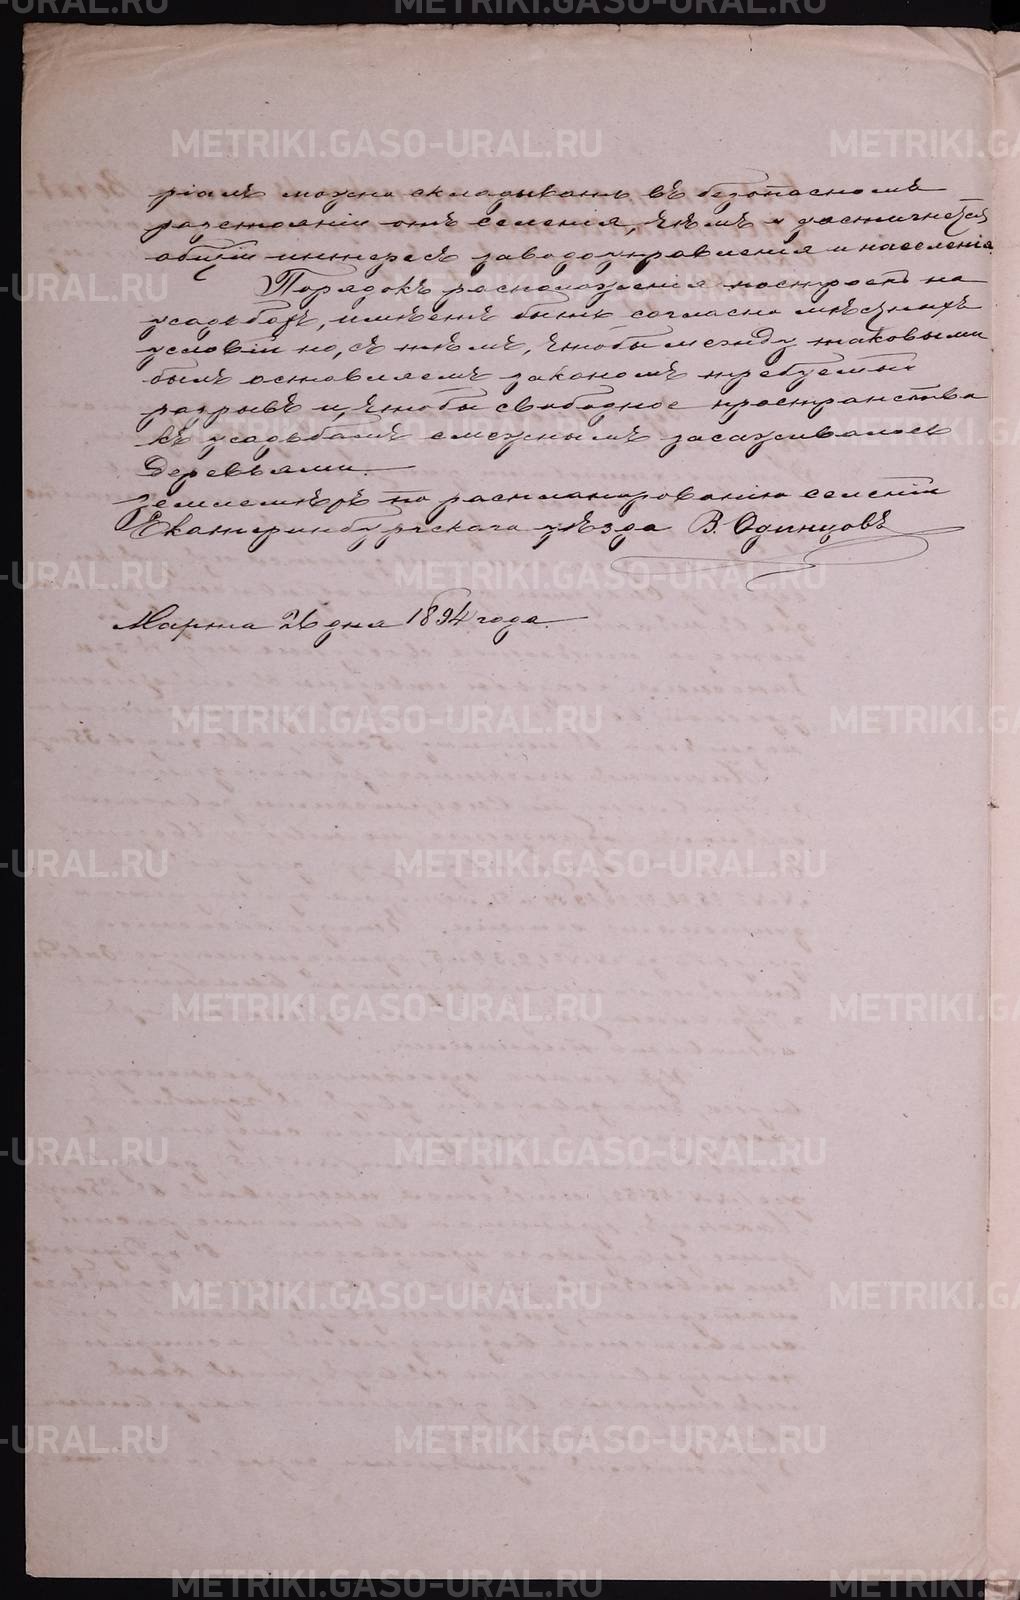 ріалъ можно складывать въ безопасномъ
разстояніи отъ селенія, чѣмъ и достигнется
общій интересъ заводоуправленія и населенія.
Порядокъ расположенія построекъ на
усадьбахъ, имѣетъ быть согласно мѣстныхъ
условій но, съ тѣмъ, чтобы между таковыми
былъ оставляемъ закономъ требуемый
разрывъ и, чтобы свободное пространство
къ усадьбамъ смежнымъ засаживалось
деревьями.
Землемѣръ по распланированію селеній
Екатеринбургскаго уѣзда В. Одинцовъ
Марта 26 дня 1894 года.
METRIKI.GASO-URAL.RU